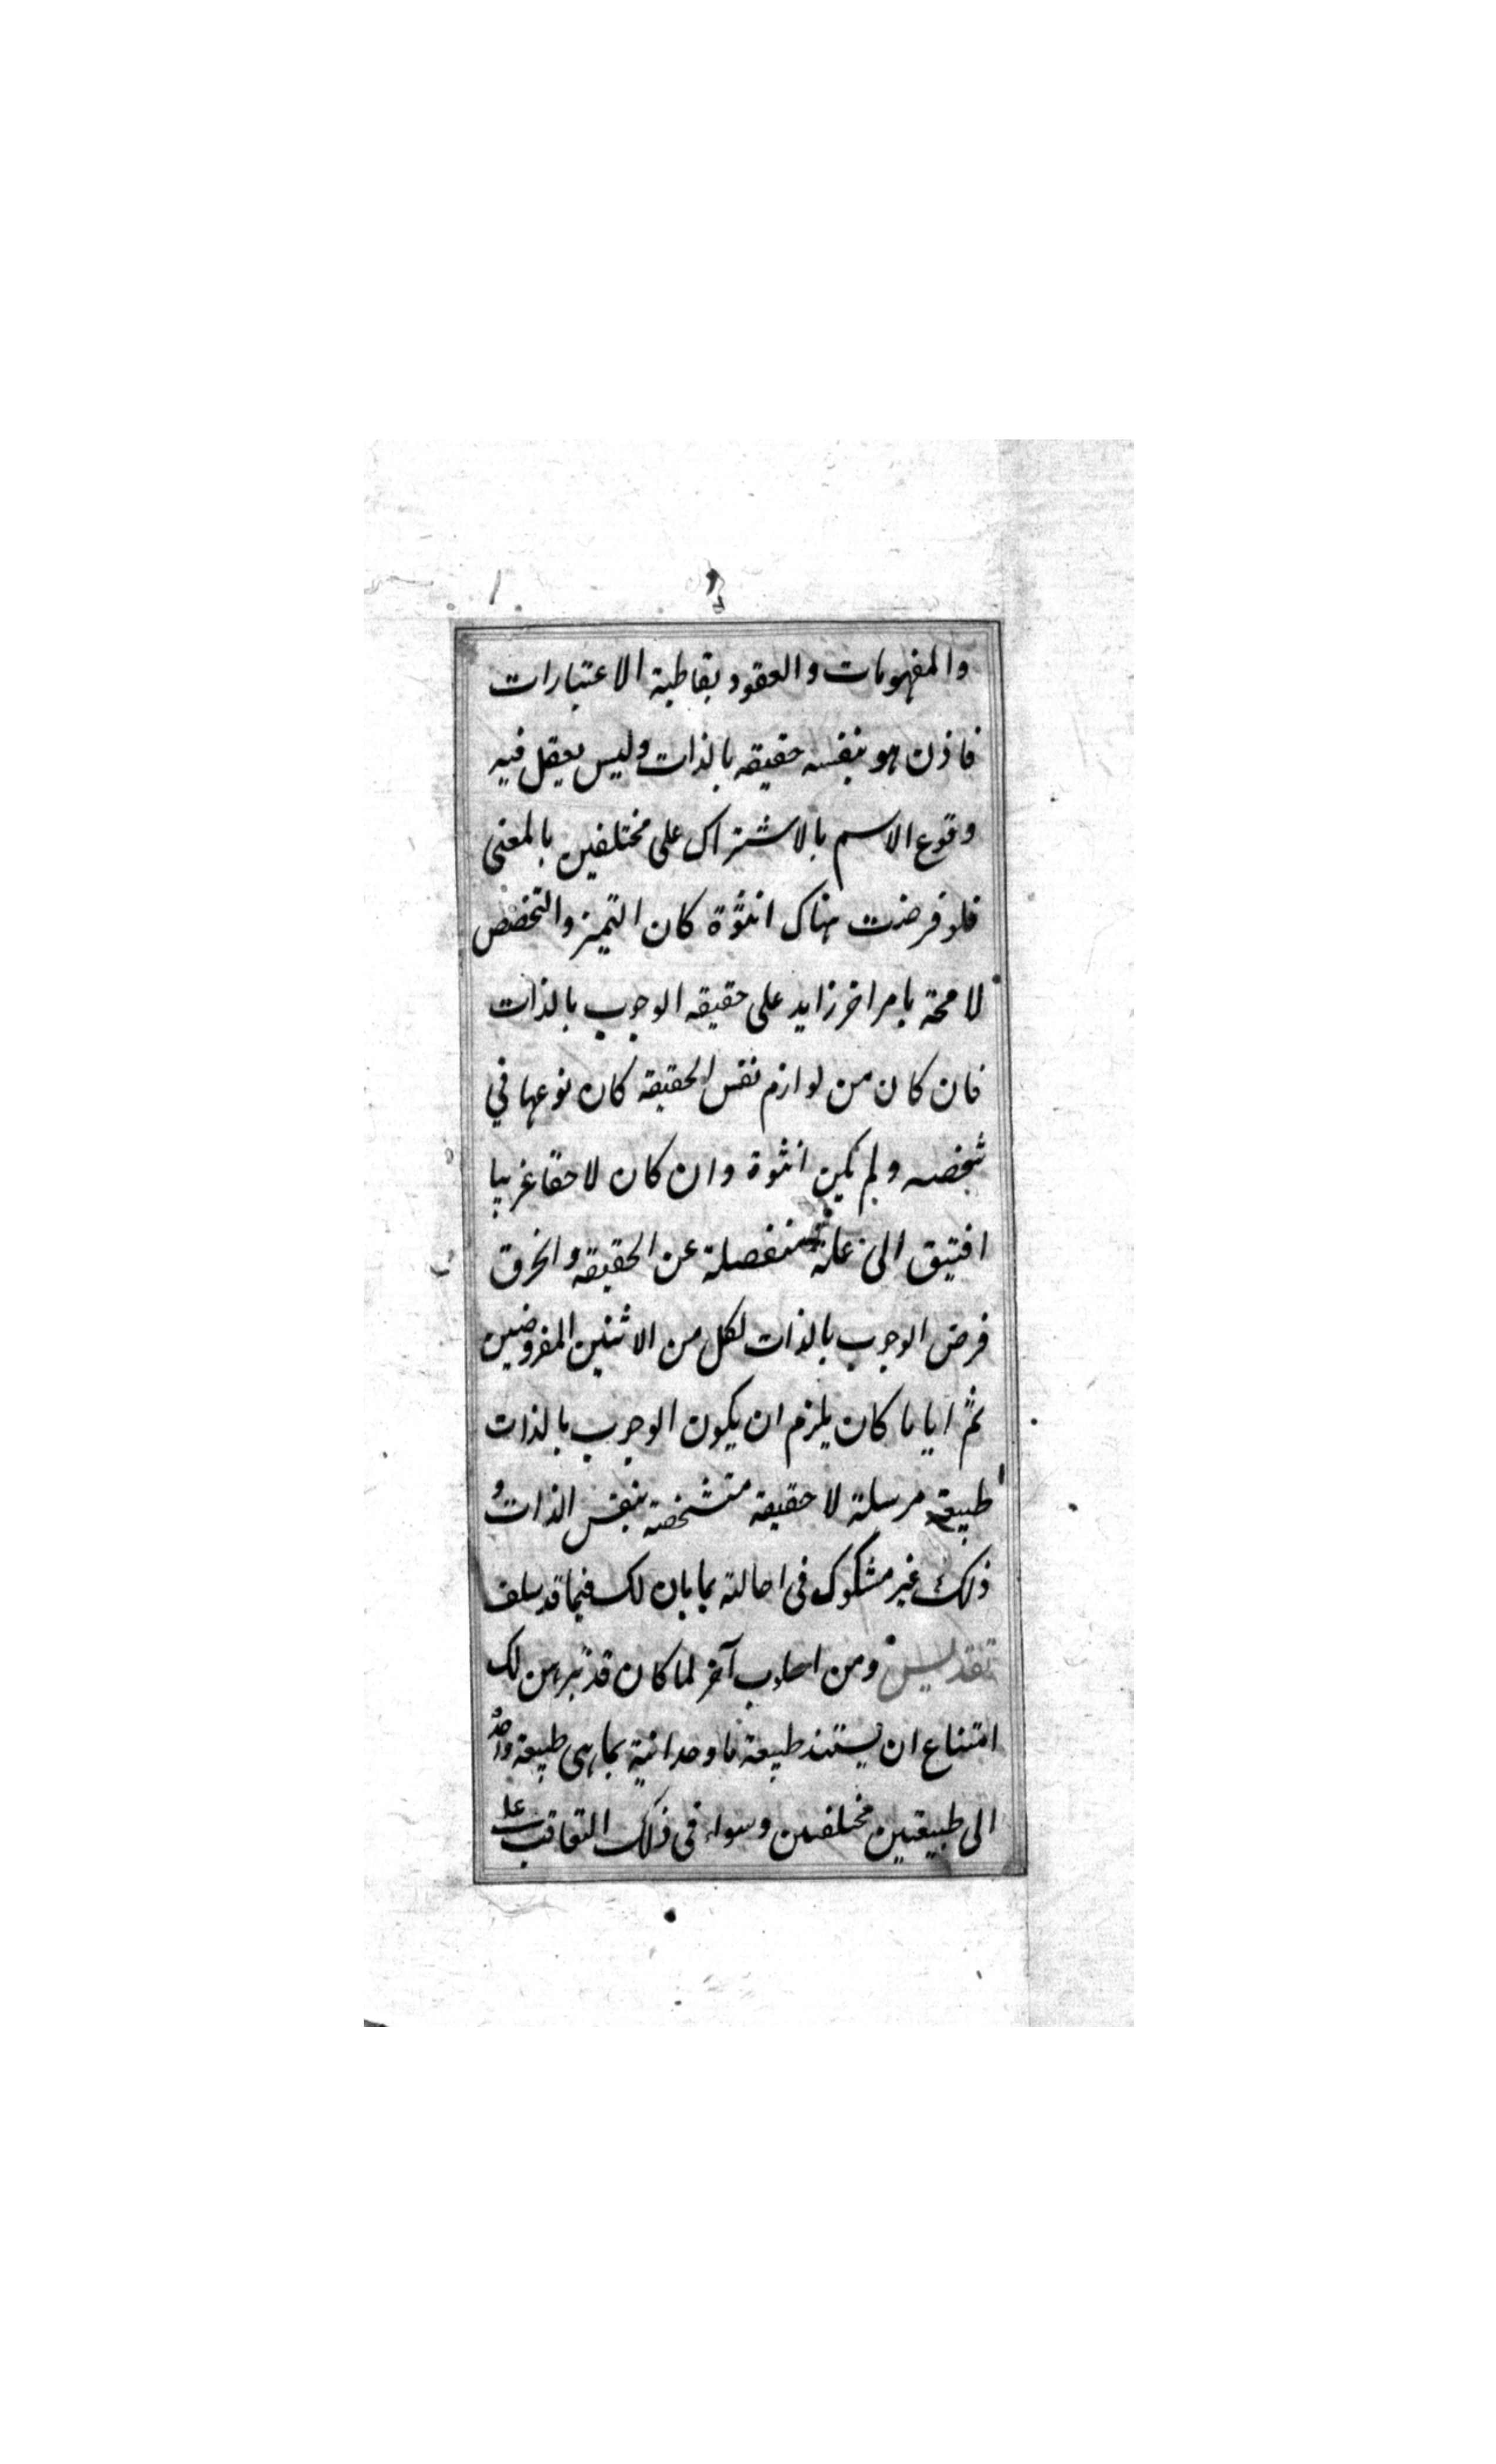 والمفهومات والعقود بقاطبة الاعتبارات
فاذن هو بنفسه حقيقه بالذات وليس يعقل فيه
وقوع الاسم بالاشتراك على مختلفين بالمعنى
فلو فرضت هناك اثنوة كان التميز والتخصص
لا محة بامر اخر زايد على حقيقه الوجوب بالذات
فان كان من لوازم نفس الحقيقه كان نوعها في
شخصه ولم يكن اثنوة وان كان لاحقا غريبا
افتيق الى علة منفصلة عن الحقيقه وانخرق
فرض الوجوب بالذات لكل من الاثنين المفروضين
ثم ايا ما كان يلزم ان يكون الوجوب بالذات
طبيعة مرسلة لا حقيقة متشخصة بنفس الذات و
ذلك غير مشكوك في احالته بما بان لك فيما قد سلف
تقديس ومن اسلوب آخر لما كان قد تبرهن لك
امتناع ان يستند طبيعة ما وحدانية بما هي طبيعة واحدة
الى طبيعتين مختلفتين وسواء في ذلك التعاقب على